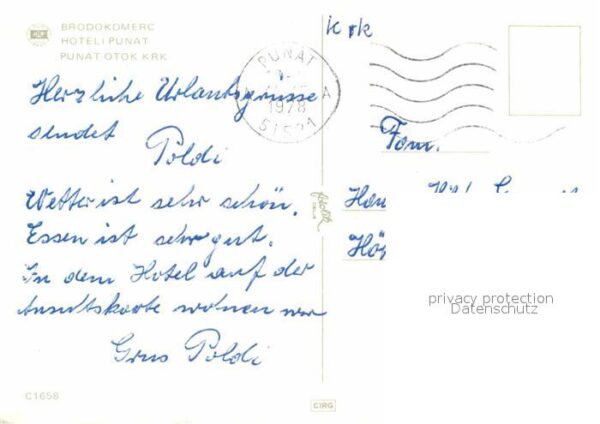 BRODOKOMERC
HOTELI PUNAT
PUNAT OTOK KRK
Krk
PUNAT
1978
51521
Herzliche Urlaubsgrüsse
sendet
Poldi
Wetter ist sehr schön.
Essen ist sehr gut.
In dem Hotel auf der
Ansichtskarte wohnen wir
Grus Poldi
Fam.
Hö
privacy protection
Datenschutz
C1658
CIRG